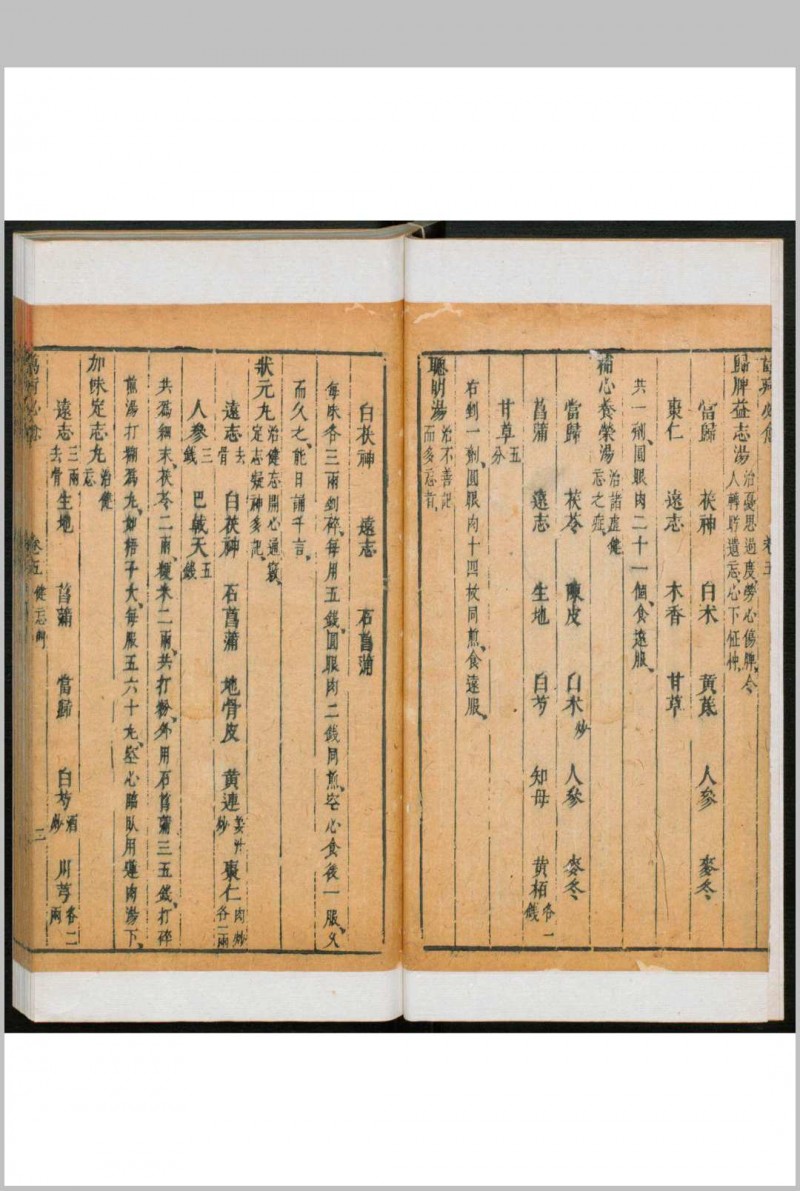 卷五
歸脾益志湯 治憂思過度勞心傷脾令
人轉盻遺忘心下怔忡
當歸 茯神 白朮 黃芪 人參 麥冬
棗仁 遠志 木香 甘草
共一劑圓眼肉二十一個食遠服
補心養榮湯 治諸虛健
忘之症
當歸 茯苓 陳皮 白朮炒 人參 麥冬
菖蒲 遠志 生地 白芍 知母 黃栢各一錢
甘草五分
右剉一劑圓眼肉十四枚同煎食遠服
聰明湯 治不善記
而多忘者
白茯神 遠志 石菖蒲
每味各三兩剉碎每用五錢圓眼肉二錢同煎空心食後一服久
而久之能日誦千言
狀元丸 治健忘開心通竅
定志凝神多記
遠志去骨 白茯神 石菖蒲 地骨皮 黃連姜汁炒 棗仁肉炒各二兩
人參三錢 巴戟天五錢
共爲細末茯苓二兩粳米二兩共打粉外用石菖蒲三五錢打碎
煎湯打糊爲丸如梧子大每服五六十丸空心臨臥用蓮肉湯下
加味定志丸 治健
忘
遠志三兩去骨 生地 菖蒲 當歸 白芍酒炒 川芎各二兩
卷五 健忘門 三